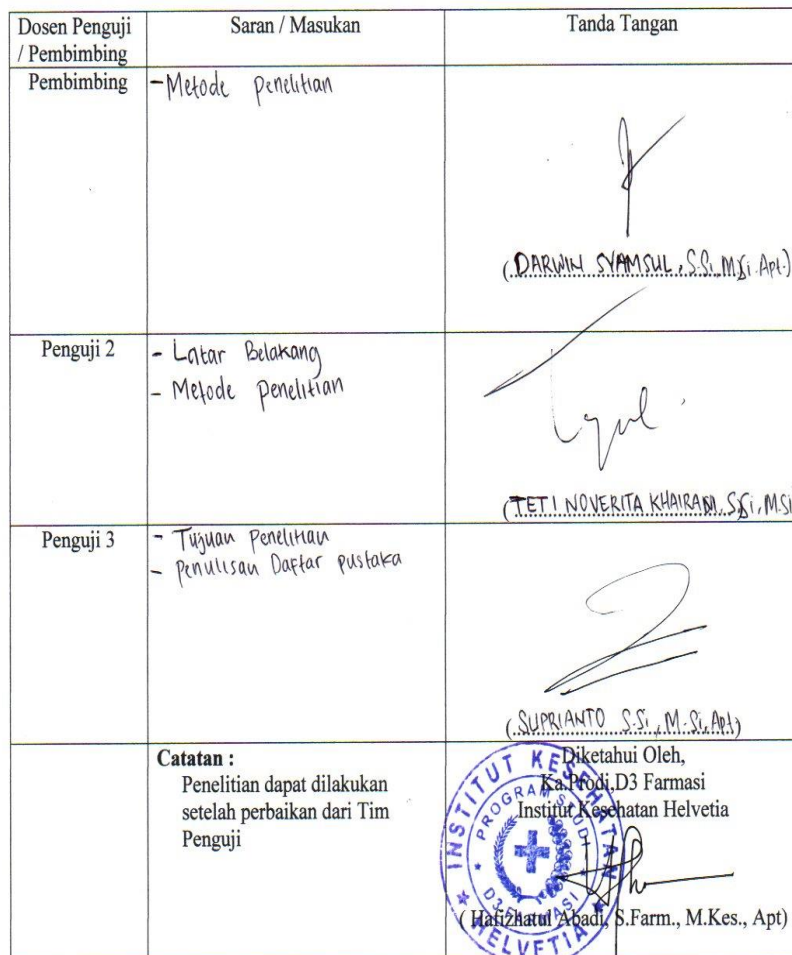 Dosen Penguji
/ Pembimbing
Saran / Masukan
Tanda Tangan
Pembimbing
- Metode penelitian
(DARWIN SYAMSUL, S.Si, M.Si. Apt.)
Penguji 2
- Latar Belakang
- Metode penelitian
(TETI NOVERITA KHAIRANI, S.Si, M.Si
Penguji 3
- Tujuan Penelitian
- Penulisan Daftar pustaka
(SUPRIANTO S.Si, M.Si, Apt)
Catatan :
Penelitian dapat dilakukan
setelah perbaikan dari Tim
Penguji
Diketahui Oleh,
Ka.Prodi,D3 Farmasi
Institut Kesehatan Helvetia
INSTITUT KESEHATAN
PROGRAM STUDI
D3 FARMASI
HELVETIA
( Hafizhatul Abadi, S.Farm., M.Kes., Apt)